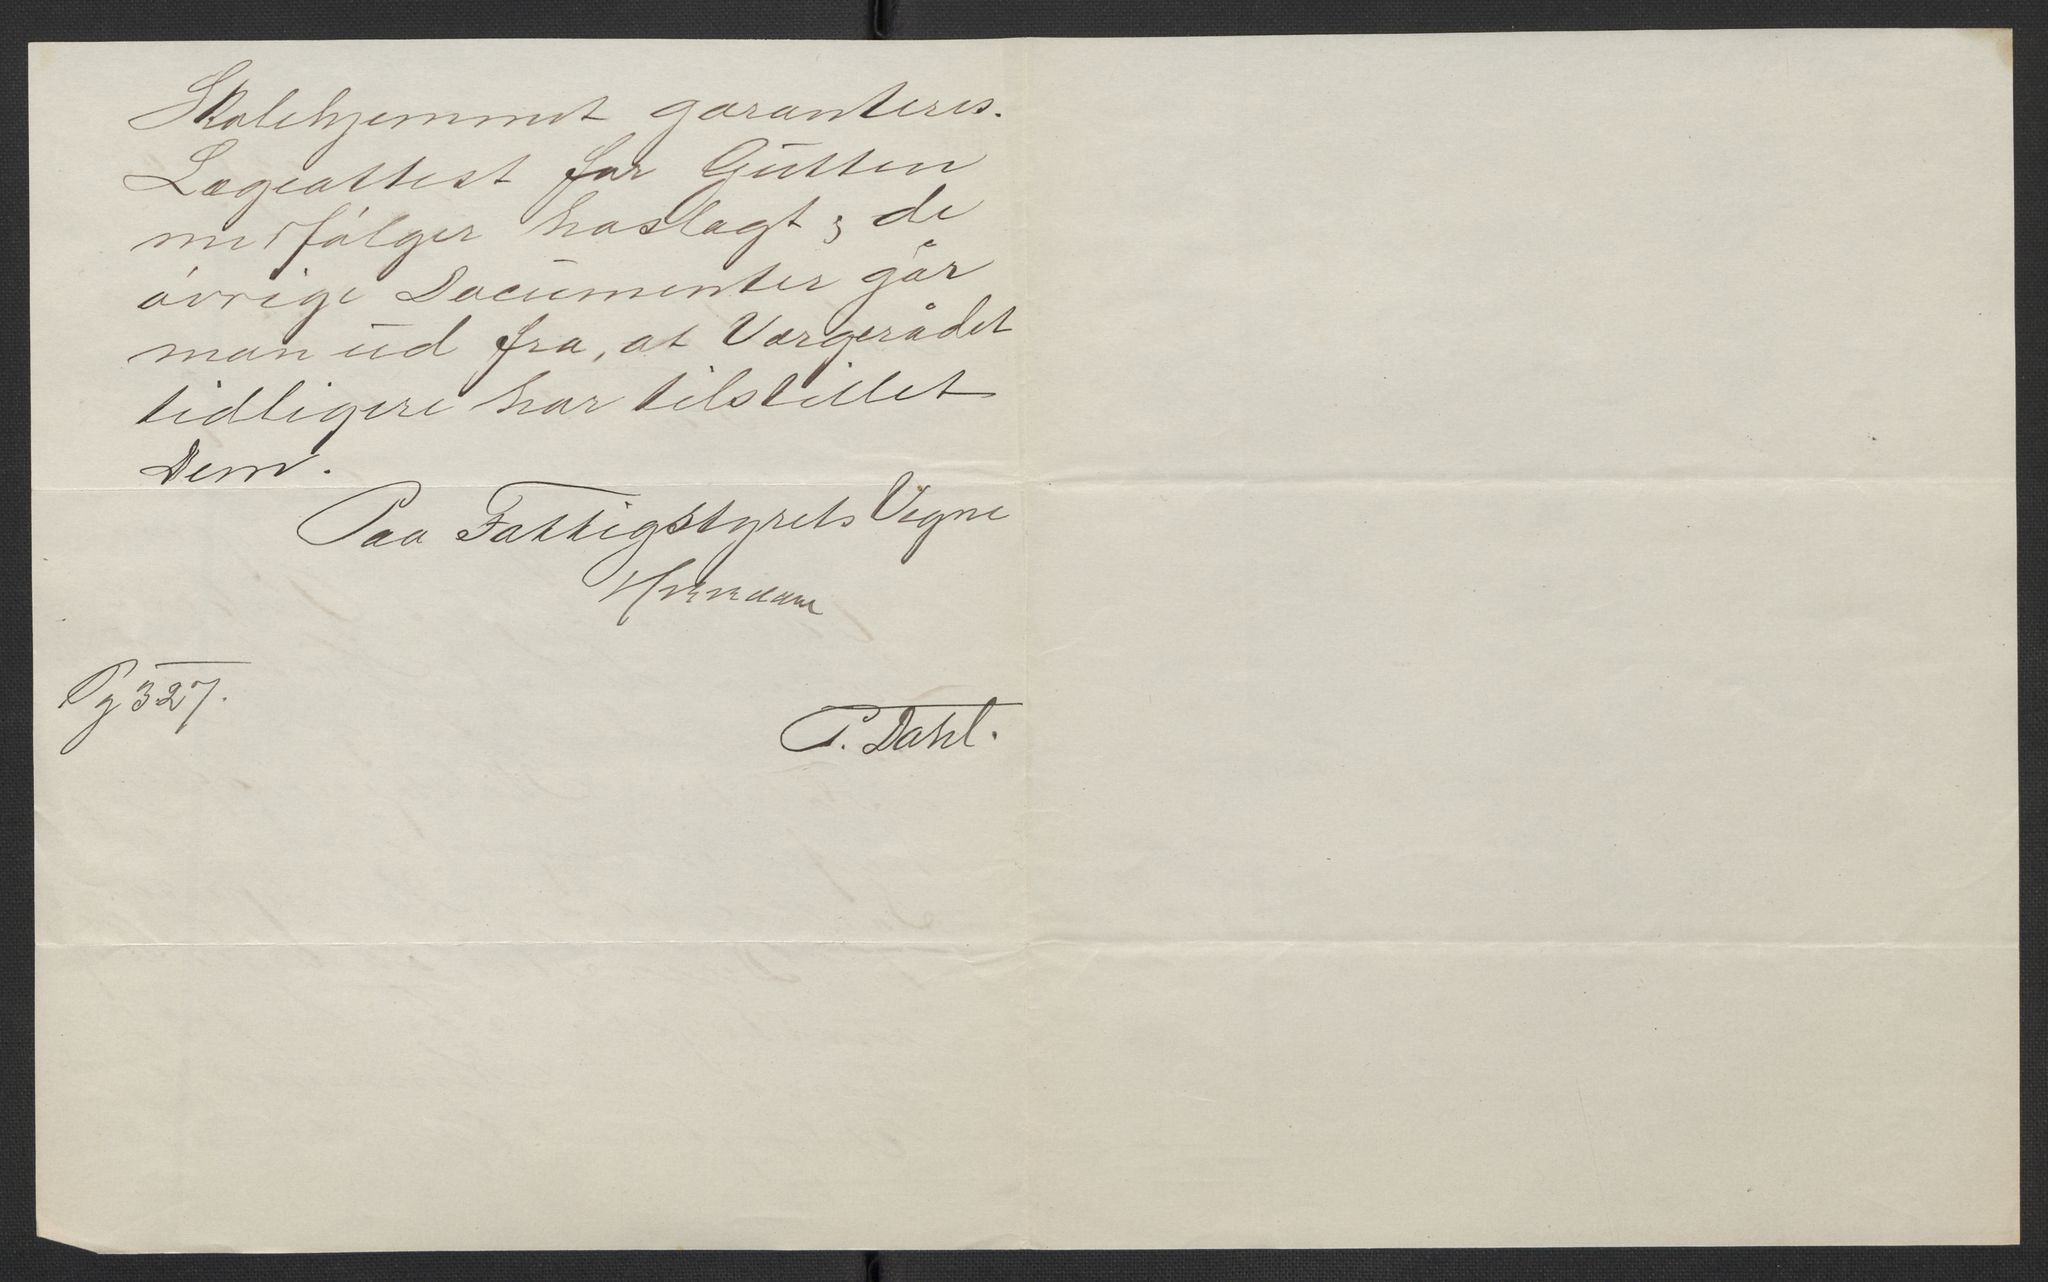 Skolehjemmet garanteres.
Lægeattest for Gutten
medfølger hoslagt; de
øvrige Documenter går
man ud fra, at Værgerådet
tidligere har tilstillet
Dem.
Paa Fattigstyrets Vegne
Pg 327.
P. Dahl.